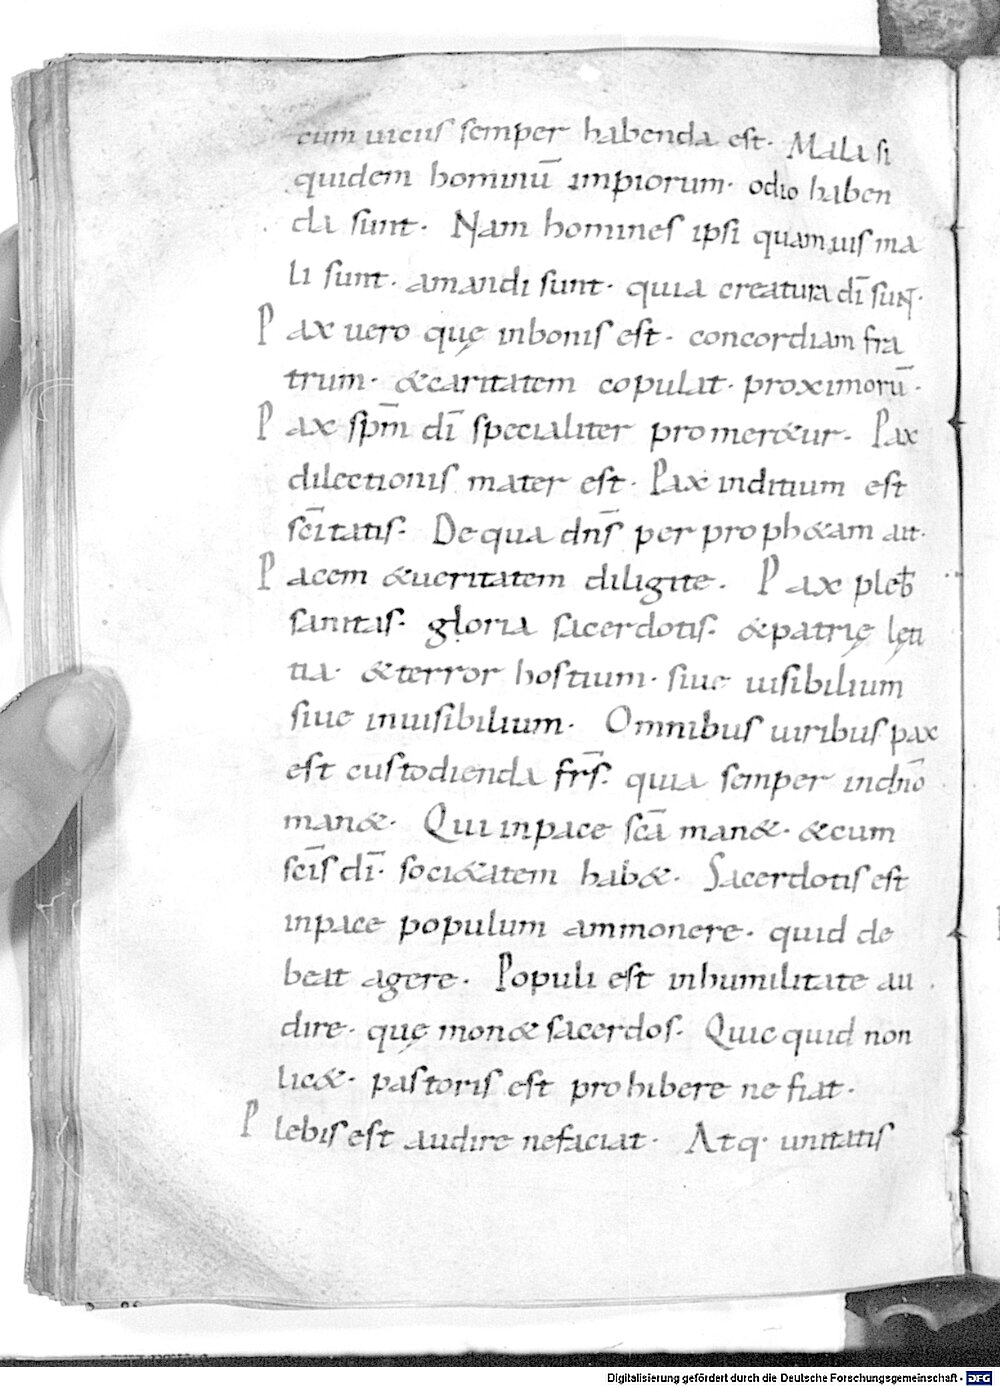 cum uicus semper habenda est. Mala si
quidem hominū impiorum. odio haben
da sunt. Nam homines ipsi quamuis ma
li sunt. amandi sunt. quia creatura dī sunt.
Pax uero quę inbonis est. concordiam fra
trum. &caritatem copulat. proximorū.
Pax spm̄ dī specialiter promer&ur. Pax
dilectionis mater est. Pax inditium est
scītatis. De qua dn̄s per proph&am ait.
Pacem &ueritatem diligite. Pax pleb̄
sanitas. gloria sacerdotis. &patrię lęti
tia. &terror hostium. siue uisibilium
siue inuisibilium. Omnibus uiribus pax
est custodienda frs̄. quia semper indn̄o
man&. Qui inpace scā man&. &cum
scīs dī. soci&atem hab&. Sacerdotis est
inpace populum ammonere. quid de
beat agere. Populi est inhumilitate au
dire. quę mon& sacerdos. Quicquid non
lic&. pastoris est prohibere ne fiat.
Plebis est audire nefaciat. Atq. unitatis
Digitalisierung gefördert durch die Deutsche Forschungsgemeinschaft - DFG